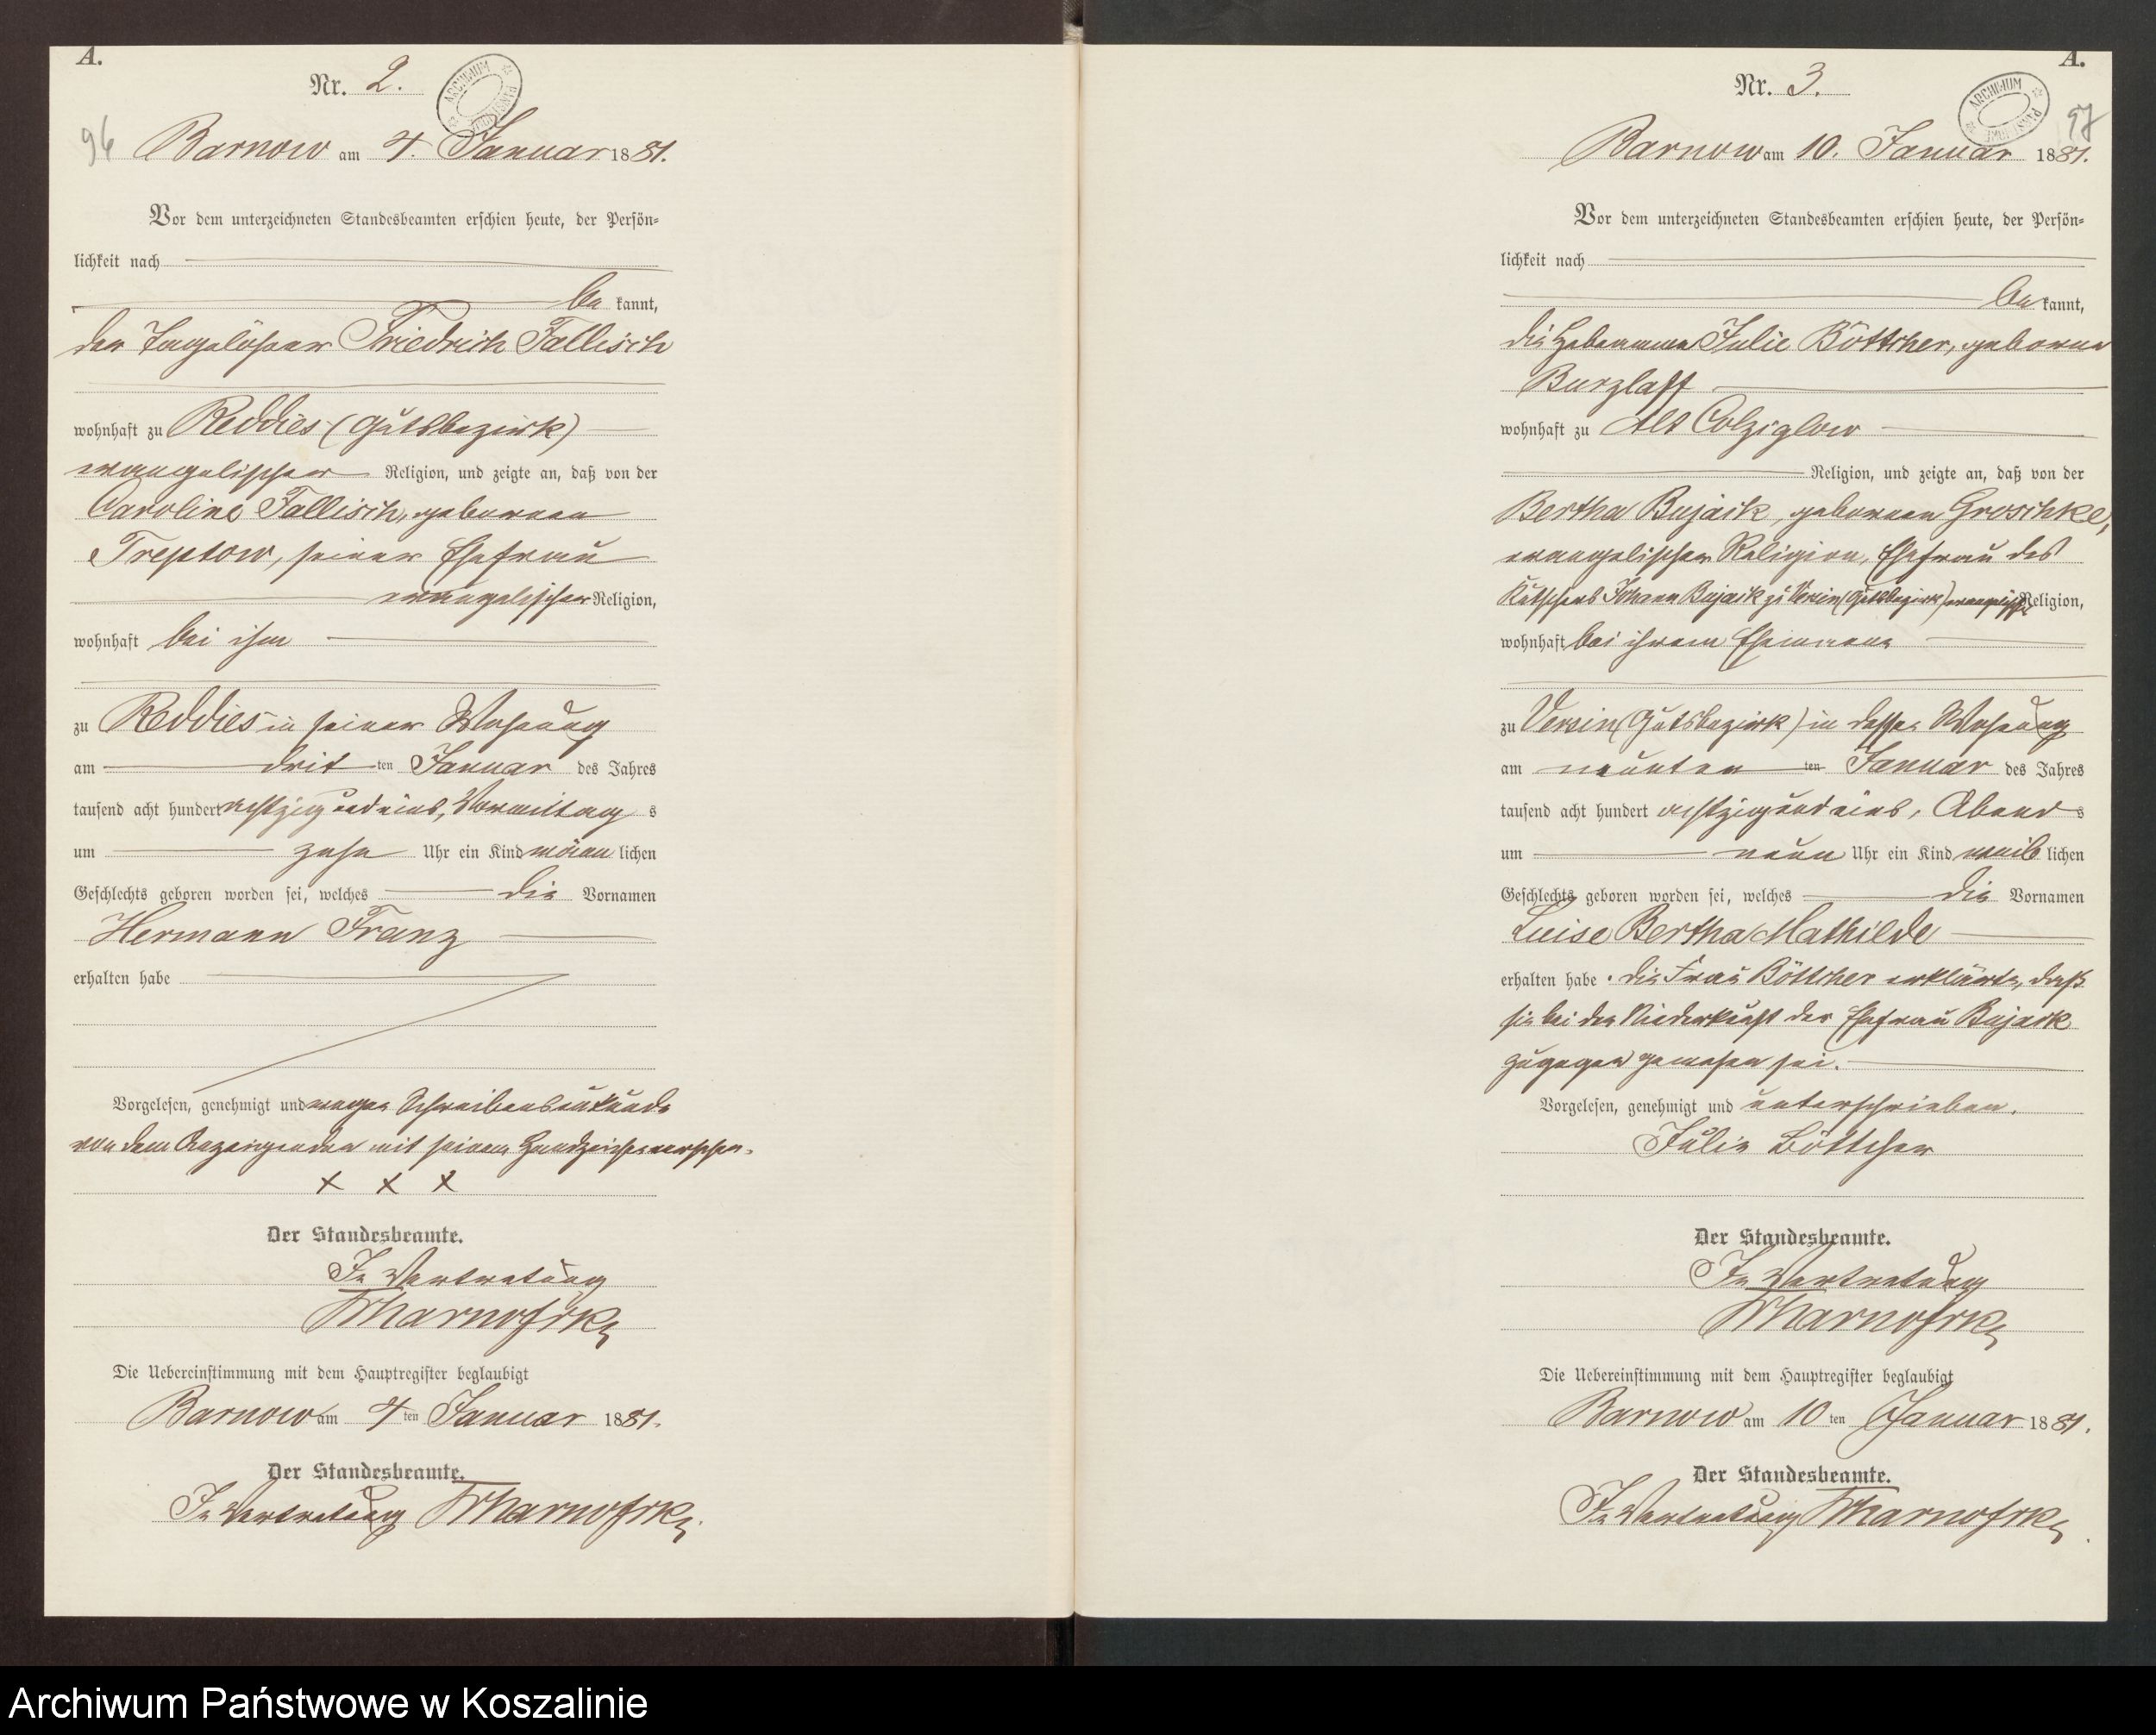 A.
Nr. 2.
ARCHIWUM
96
Barnow am 4. Januar 1881.
Vor dem unterzeichneten Standesbeamten erschien heute, der Persön-
lichkeit nach
be kannt,
der Tagelöhner Friedrich Fallisch
wohnhaft zu Reddies (Gutsbezirk)
evangelischer Religion, und zeigte an, daß von der
Caroline Fallisch, geborenen
Treptow, seiner Ehefrau
evangelischer Religion,
wohnhaft bei ihm
zu Reddies in seiner Wohnung
am drit ten Januar des Jahres
tausend acht hundert achtzig und eins, Vormittag s
um zehn Uhr ein Kind männ lichen
Geschlechts geboren worden sei, welches die Vornamen
Hermann Franz
erhalten habe
Vorgelesen, genehmigt und wegen Schreibensunkunde
von dem Anzeigenden mit seinem Handzeichen versehen.
x x x
Der Standesbeamte.
In Vertretung
Die Uebereinstimmung mit dem Hauptregister beglaubigt
Barnow am 4 ten Januar 1881.
Der Standesbeamte.
In Vertretung
A.
Nr. 3.
ARCHIWUM
97
Barnow am 10. Januar 1881.
Vor dem unterzeichneten Standesbeamten erschien heute, der Persön-
lichkeit nach
be kannt,
die Hebamme Julie Böttcher, geborne
Burzlaff
wohnhaft zu Alt Colziglow
Religion, und zeigte an, daß von der
Bertha Bujack, geborenen Groschke,
evangelischer Religion, Ehefrau des
Kutschers Johann Bujack zu Versin (Gutsbezirk) evangelischer Religion,
wohnhaft bei ihrem Ehemann
zu Versin (Gutsbezirk) in dessen Wohnung
am neunten ten Januar des Jahres
tausend acht hundert achtzig und eins, Abend s
um neun Uhr ein Kind weib lichen
Geschlechts geboren worden sei, welches die Vornamen
Luise Bertha Mathilde
erhalten habe. Die Frau Böttcher erklärte, daß
sie bei der Niederkunft der Ehefrau Bujack
zugegen gewesen sei.
Vorgelesen, genehmigt und unterschrieben.
Julie Böttcher
Der Standesbeamte.
In Vertretung
Die Uebereinstimmung mit dem Hauptregister beglaubigt
Barnow am 10 ten Januar 1881.
Der Standesbeamte.
In Vertretung
Archiwum Państwowe w Koszalinie